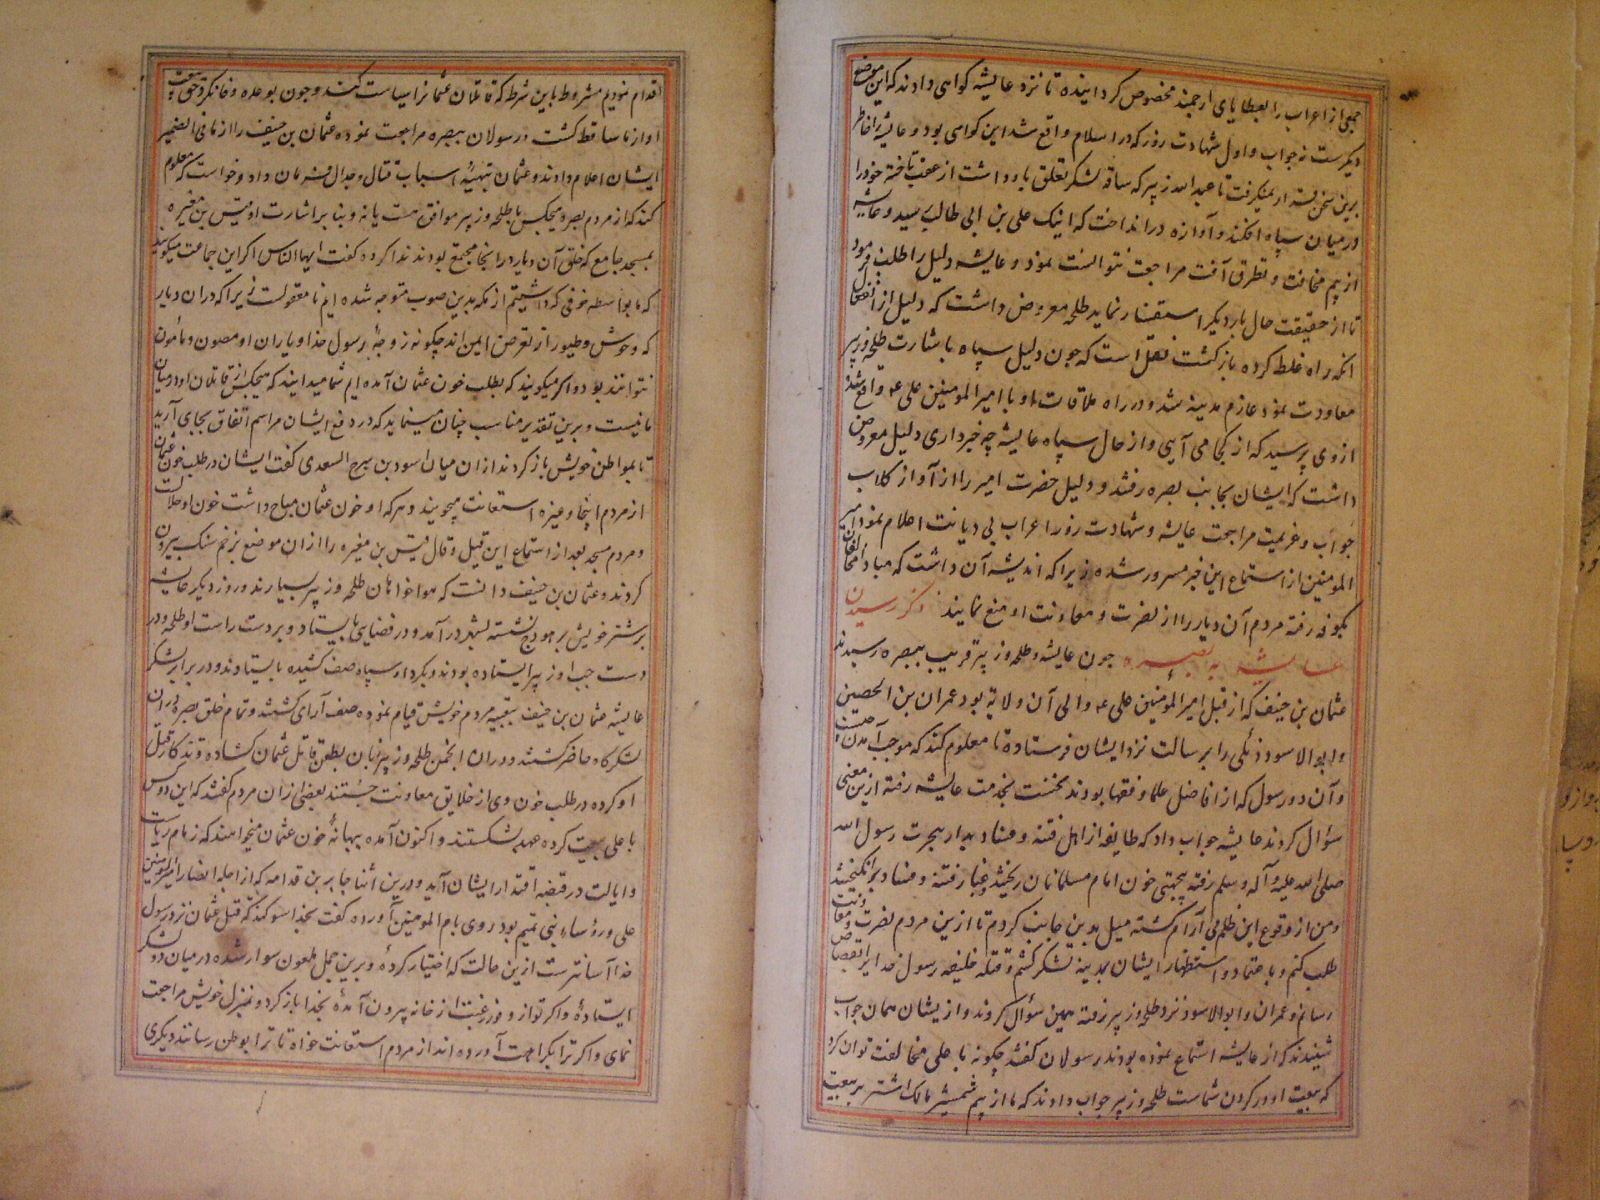 جمعی از اعراب را بعطایای ارجمند مخصوص کردانیده تا نزد عایشه کواهی دادند که این موضع
دیکرست نه حواب و اول شهادت زور که در اسلام واقع شد این کواهی بود و عایشه را خاطر
برین سخن تسلی نمیکرفت تا عبد الله زبیر که ساقه لشکر تعلق باو داشت از عقب تاخته خود را
در میان سپاه افکند و آوازه در انداخت که اینک علی بن ابی طالب رسید و عایشه
از بیم مخافت و تطرق آفت مراجعت نتوانست نمود و عایشه دلیل را طلب فرمود
تا از حقیقت حال بار دیکر استفسار نماید طلحه معروض داشت که دلیل از انفعال
انکه راه غلط کرده بازکشت نقل است که چون دلیل سپاه باشارت طلحه و زبیر
معاودت نمود عازم مدینه شد و در راه ملاقات او با امیر المومنین علی ع واقع شد
از وی پرسید که از کجا می آیی و از حال سپاه عایشه چه خبر داری دلیل معروض
داشت که ایشان بجانب بصره رفتند و دلیل حضرت امیر را از آواز کلاب
حواب و عزیمت مراجعت عایشه و شهادت زور اعراب بی دیانت اعلام نمود امیر
المومنین از استماع این خبر مسرور شده زیرا که اندیشه آن داشت که مبادا مخالفان
بکوفه رفته مردم آن دیار را از نصرت و معاونت او منع نمایند ذکر رسیدن
عایشه به بصره چون عایشه و طلحه و زبیر قریب ببصره رسیدند
عثمان بن حنیف که از قبل امیر المؤمنین علی ع والی آن ولایة بود عمران بن الحصین
و ابو الاسود دئلی را برسالت نزد ایشان فرستاد تا معلوم کند که موجب آمدن چیست
و آن دو رسول که از افاضل علما و فقها بودند نخست بخدمت عایشه رفته ازین معنی
سؤال کردند عایشه جواب داد که طایفه از اهل فتنه و فساد بدار هجرت رسول الله
صلی الله علیه و آله و سلم رفته بیجهتی خون امام مسلمانان ریختند و غبار فتنه و فساد برانکیختند
و من از وقوع این ظلم بی آرام کشته میل بدین جانب کردم تا ازین مردم نصرت و معاونت
طلب کنم و باعتماد و استظهار ایشان بمدینه لشکر کشم و قتله خلیفه رسول خدا را بقصاص
رسانم و عمران و ابو الاسود نزد طلحه و زبیر رفته همین سؤال کردند و از یشان همان جواب
شنیدند که از عایشه استماع نموده بودند رسولان کفتند چکونه با علی مخالفت توان کرد
که بیعت او در کردن شماست طلحه و زبیر جواب دادند که ما از بیم شمشیر مالک اشتر بر بیعت
اقدام نمودیم مشروط باین شرط که قاتلان عثمانرا سیاست کند و چون بوعده وفا نکرد حق بیعت
او از ما ساقط کشت و رسولان ببصره مراجعت نموده عثمان بن حنیف را از ما فی الضمیر
ایشان اعلام دادند و عثمان بتهیۀ اسباب قتال و جدال فرمان داد و خواست که معلوم
کند که از مردم بصره هیچکس با طلحه و زبیر موافق هست یا نه و بنا بر اشارت او قیس بن مغیره
بمسجد جامع که خلق آن دیار در انجا مجتمع بودند ندا کرده کفت ایها الناس اکر این جماعت میکویند
که ما بواسطه خوفی که داشتیم از مکه بدین صوب متوجه شده ایم نا معقولست زیرا که در ان دیار
که وحوش و طیور از تعرض ایمن اند چکونه زوجۀ رسول خدا و یاران او مصون و مأمون
نتوانند بود و اکر میکویند که بطلب خون عثمان آمده ایم شما میدانید که هیچکس از قاتلان او در میان
ما نیست و برین تقدیر مناسب چنان مینماید که در دفع ایشان مراسم اتفاق بجای آرید
تا بمواطن خویش باز کردند از ان میان اسود بن سریح السعدی کفت ایشان در طلب خون عثمان
از مردم اینجا و غیره استعانت میجویند و هر که او خون عثمان مباح داشت خون او حلال است
و مردم مسجد بعد از استماع این قیل و قال قیس بن مغیره را از ان موضع بزخم سنک بیرون
کردند و عثمان بن حنیف دانست که هواخواهان طلحه و زبیر بسیارند و روز دیکر عایشه
بر شتر خویش بر هودج نشسته بشهر در آمد و در فضایی بایستاد و بر دست راست او طلحه و در
دست چپ او زبیر ایستاده بودند و بکرد او سپاه صف کشیده بایستادند و در برابر لشکر
عایشه عثمان بن حنیف بتعبیه مردم خویش قیام نموده صف آرای کشتند و تمام خلق بصره در ان
لشکرکاه حاضر کشتند و در ان انجمن طلحه و زبیر زبان بطعن قاتل عثمان کشاده و قدح کار قبل
او کرده در طلب خون وی از خلایق معاونت جستند بعضی از ان مردم کفتند که این دو کس
با علی بیعت کرده عهد بشکستند و اکنون آمده ببهانۀ خون عثمان میخواهند که زمام ریاست
و ایالت در قبضه اقتدار ایشان آید و درین أثنا جابر بن قدامه که از اجله انصار امیر المومنین
علی و رؤساء بنی تمیم بود روی بام المومنین آورده کفت بخدا سوکند که قتل عثمان نزد رسول
خدا آسانترست ازین حالت که اختیار کردۀ و برین جمل ملعون سوار شده در میان دو لشکر
ایستادۀ و اکر تو از وفور رغبت از خانه بیرون آمدۀ بخدا باز کرد و بمنزل خویش مراجعت
نمای و اکر ترا بکراهت آورده اند از مردم استعانت خواه تا ترا بوطن رسانند دیکری